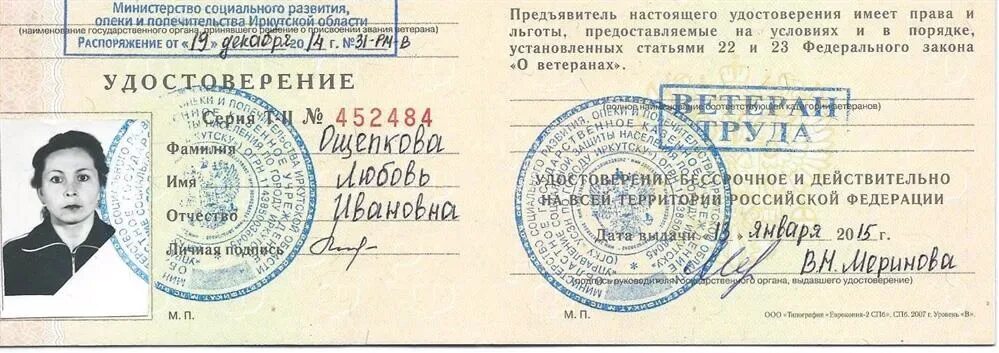 Министерство социального развития,
опеки и попечительства Иркутской области
(наименование государственного органа, принявшего решение о присвоении звания ветерана)
РАСПОРЯЖЕНИЕ от «19» декабря 2014 г. № 31-РМ-В
УДОСТОВЕРЕНИЕ
Серия Т-II № 452484
Фамилия Ощепкова
Имя Любовь
Отчество Ивановна
Личная подпись
М. П.
Предъявитель настоящего удостоверения имеет права и
льготы, предоставляемые на условиях и в порядке,
установленных статьями 22 и 23 Федерального закона
«О ветеранах».
ВЕТЕРАН
(полное наименование соответствующей категории ветеранов)
ТРУДА
УДОСТОВЕРЕНИЕ БЕССРОЧНОЕ И ДЕЙСТВИТЕЛЬНО
НА ВСЕЙ ТЕРРИТОРИИ РОССИЙСКОЙ ФЕДЕРАЦИИ
Дата выдачи 13 января 2015 г.
В.Н. Меринова
(подпись руководителя государственного органа, выдавшего удостоверение)
М. П.
ООО «Типография «Еврокопия-2 СПб». СПб. 2007 г. Уровень «В».